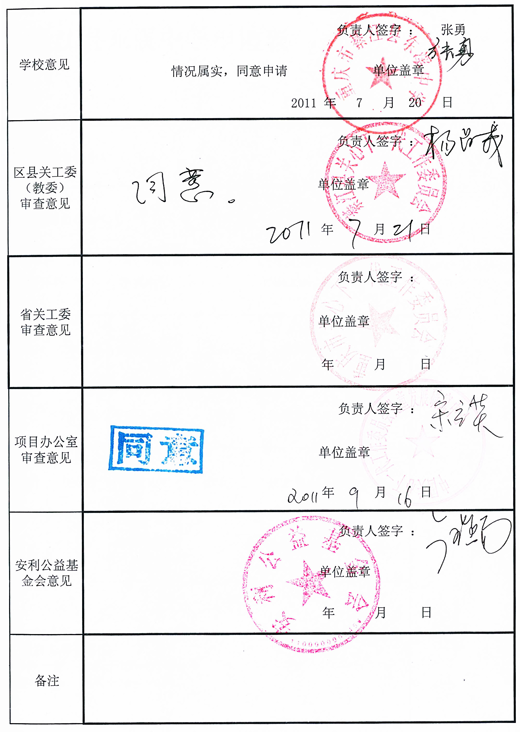 负责人签字 : 张勇
学校意见
情况属实，同意申请 单位盖章
2011 年 7 月 20 日
负责人签字 :
区县关工委
（教委）
审查意见
同意。
单位盖章
2011 年 7 月 21 日
负责人签字 :
省关工委
审查意见
单位盖章
年 月 日
负责人签字 :
项目办公室
审查意见
同意
单位盖章
2011 年 9 月 16 日
负责人签字 :
安利公益基
金会意见
单位盖章
安利公益基金会
年 月 日
备注